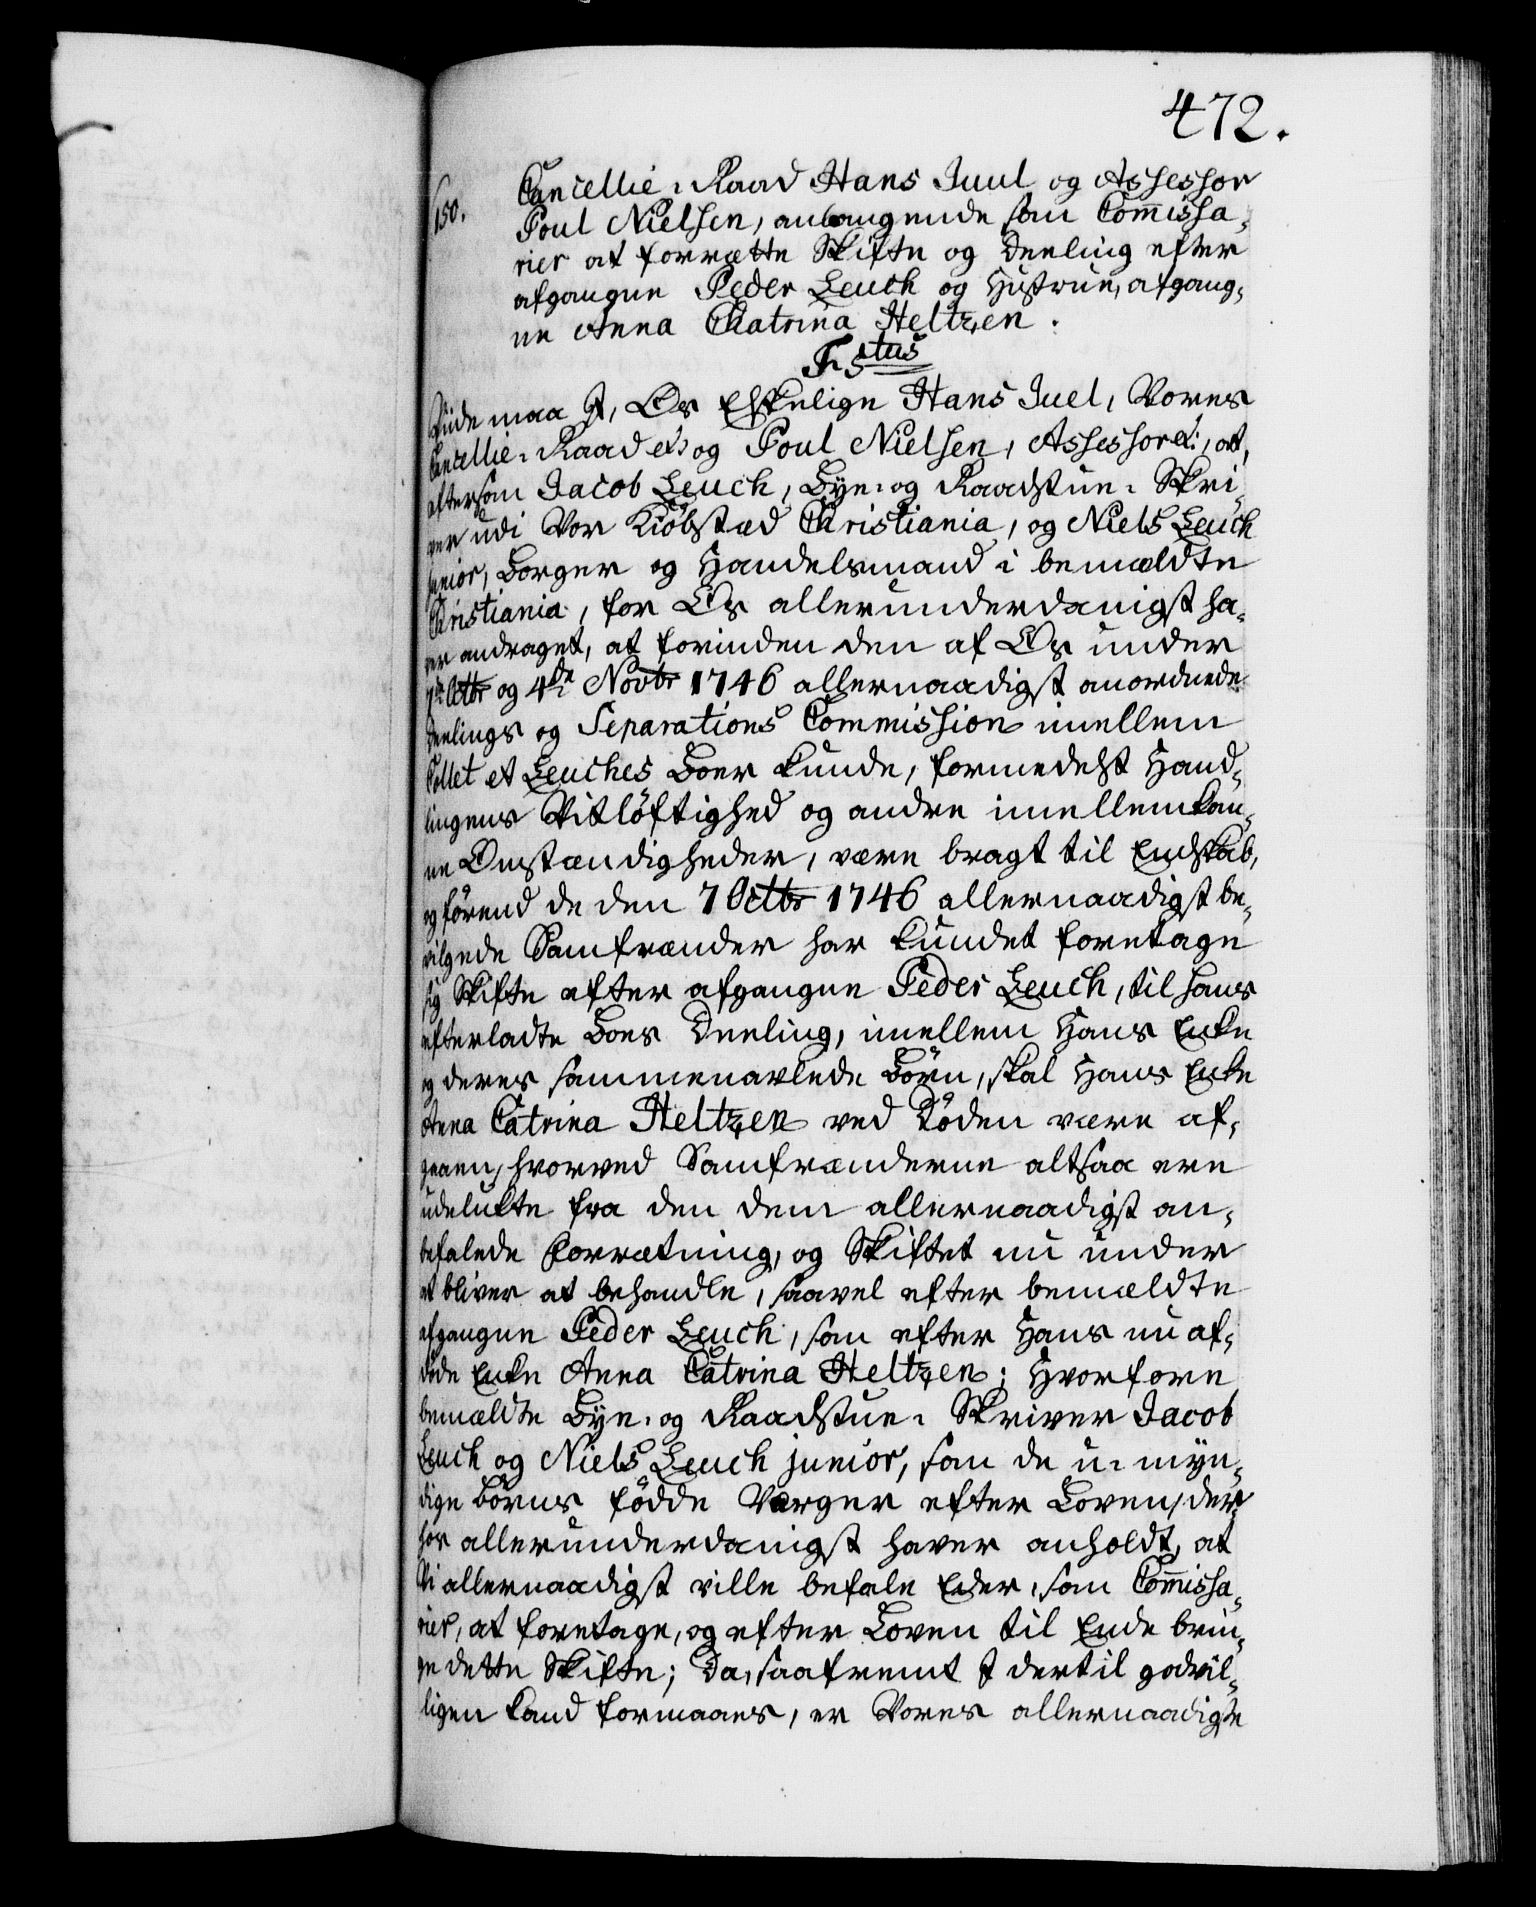 472.
150.
Cancellie-Raad Hans Juul og Assessor
Poul Nielsen, anlangende som Com̅issa-
rier at forrætte Skifte og Deeling efter
afgangne Peder Leuch og Hustrue, afgang-
ne Anna Chatrina Heltzen.
F. 5tus
Viide maa I, Os Elskelige Hans Juel, Vores
Cancellie-Raad etc: og Poul Nielsen, Assessor et:, at,
eftersom Jacob Leuch, Bye- og Raadstue-Skri-
ver udi Vor Kiöbstæd Christiania, og Niels Leuch
junior, Borger og Handelsmand i bemældte
Christiania, for Os allerunderdanigst ha-
ver andraget, at forinden den af Os under
7de Octbr og 4de Novbr 1746 allernaadigst anordnede
Deelings og Separations Commission imellem
Collet et Leuches Boer kunde, formedelst Hand-
lingens Vitlöftighed og andre imellemkom-
ne Omstændigheder, være bragt til Endskab,
og förend de den 7 Octbr 1746 allernaadigst be-
vilgede Samfrænder har kundet foretage
sig Skifte efter afgangne Peder Leuch, til hans
efterladte Boes Deeling, imellem Hans Enke
og deres sammenavlede Börn, skal Hans Enke
Anna Catrina Heltzen ved Döden være af-
gaaen, hvorved Samfrænderne altsaa ere
udelukte fra den dem allernaadigst an-
befalede Forrætning, og Skiftet nu under
et bliver at behandle, saavel efter bemældte
afgangne Peder Leuch, som efter Hans nu af-
döde Enke Anna Catrina Heltzen; Hvorfore
bemældte Bye- og Raadstue-Skriver Jacob
Leuch og Niels Leuch junior, som de u-myn-
dige Börns födde Værger efter Loven, der-
for allerunderdanigst haver anholdt, at
Vi allernaadigst ville befale Eder, som Com̅issa-
rier, at foretage, og efter Loven til Ende brin-
ge dette Skifte; Da, saafremt I dertil godvil-
ligen kand formaaes, er Vores allernaadigste